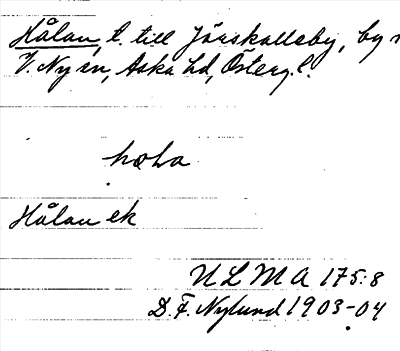 Hålan, t. till Järskallsby, by i
V. Ny sn, Aska hd, Österg. l.
hola
Hålan ek
ULMA 175:8
D. F. Nylund 1903-04